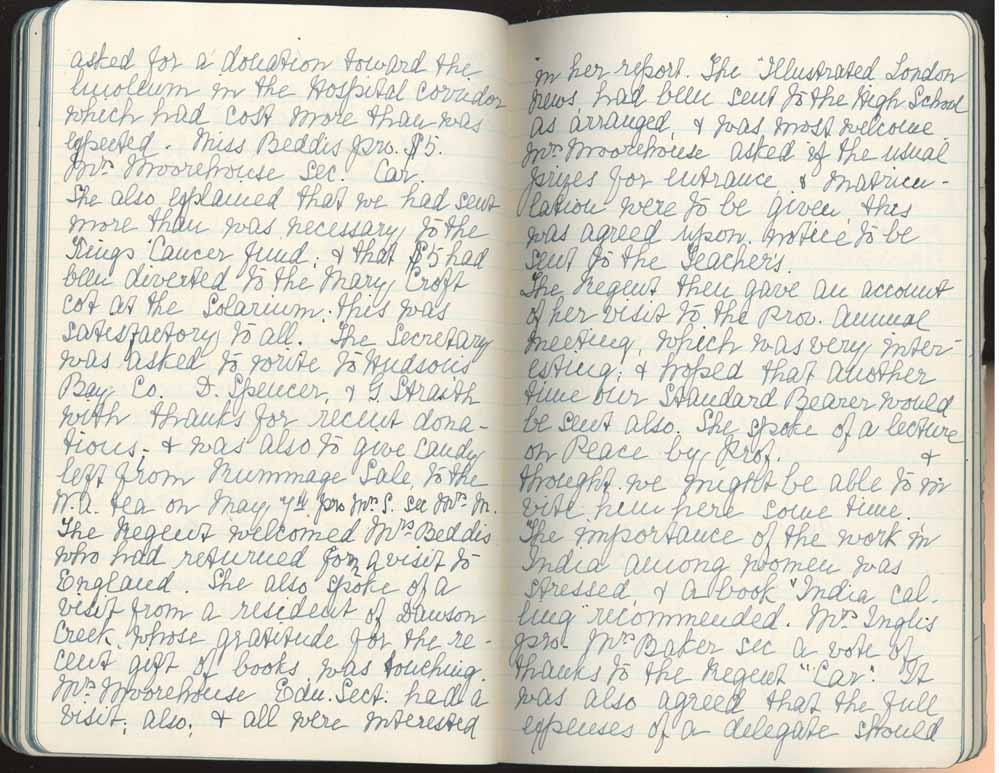 asked for a donation toward the
linoleum in the Hospital corridor
which had cost more than was
expected. Miss Beddis pro. $5.
Mrs Moorehouse Sec. Car.
She also explained that we had sent
more than was necessary to the
"Kings" Cancer fund; & that $5 had
been diverted to the Mary Croft
cot at the Solarium; this was
satisfactory to all. The Secretary
was asked to write to Hudson's
Bay Co. D. Spencer, & G. Straith
with thanks for recent dona-
tions; & was also to give candy
left from Rummage Sale, to the
W.A. tea on May 7th pro Mrs S. sec Mrs M.
The Regent welcomed Mrs Beddis
who had returned from a visit to
England. She also spoke of a
visit from a resident of Dawson
Creek, whose gratitude for the re-
cent gift of books was touching.
Mrs Moorehouse Edu. Sect. had a
visit, also; & all were interested
in her report. The "Illustrated London
news had been sent to the High School
as arranged, & was most welcome
Mrs Moorehouse asked if the usual
prizes for entrance & matricu-
lation were to be given, this
was agreed upon. notice to be
sent to the Teachers.
The Regent then gave an account
of her visit to the Prov. Annual
meeting, which was very inter-
esting; & hoped that another
time our Standard Bearer would
be sent also. She spoke of a lecture
on Peace by Prof. &
thought we might be able to in
vite him here some time.
The importance of the work in
India among women was
stressed, & a book "India cal-
ling" recommended. Mrs Inglis
pro. Mrs Baker sec a vote of
thanks to the Regent "Car". It
was also agreed that the full
expenses of a delegate should